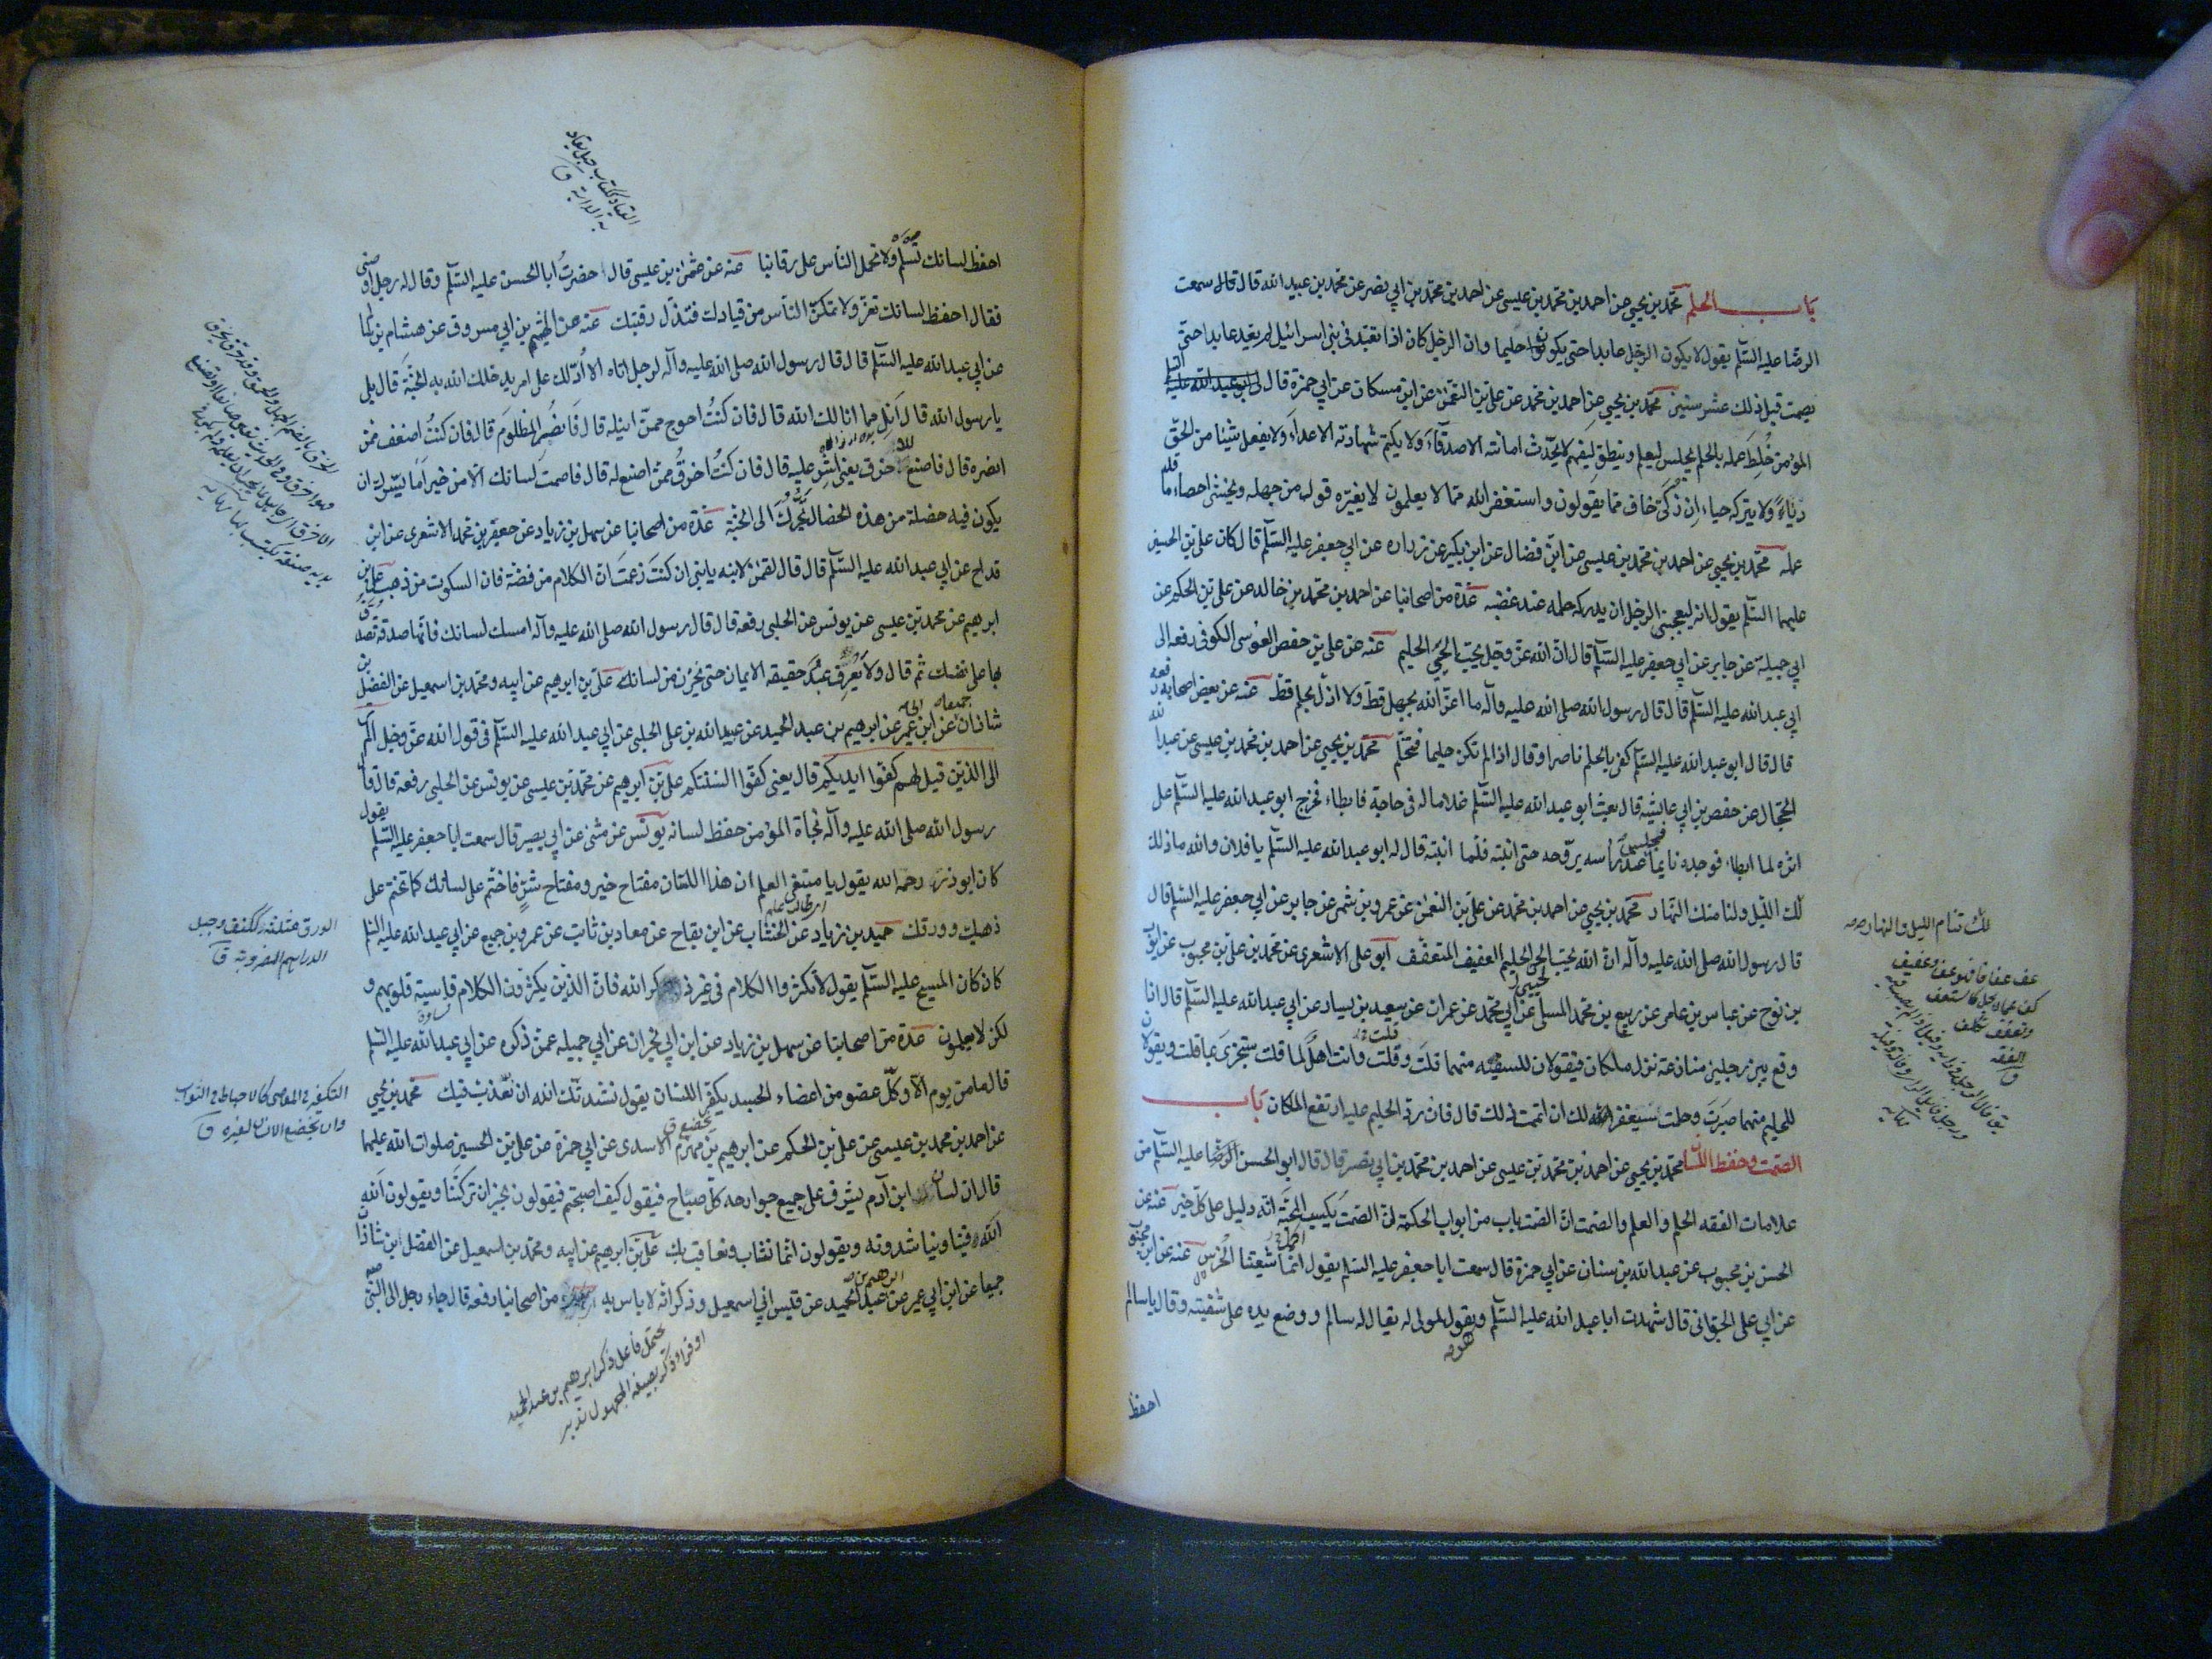 باب الحلم محمد بن يحيى عن احمد بن محمد بن عيسى عن احمد بن محمد بن ابي نصر عن محمد بن عبيد الله قال قال سمعت
الرضا عليه السلم يقول لا يكون الرجل عابدا حتى يكون حليما وان الرجل كان اذا تعبد في بني اسرائيل لم يعد عابدا حتى
يصمت قبل ذلك عشر سنين محمد بن يحيى عن احمد بن محمد عن علي بن النعمن عن ابن مسكان عن ابي حمزة قال
المؤمن خلط عمله بالحلم يجلس ليعلم وينطق ليفهم لا يحدث امانته الاصدقاء ولا يكتم شهادته الاعداء ولا يفعل شيئا من الحق
رياء ولا يتركه حياء ان زكى خاف مما يقولون واستغفر الله مما لا يعلمون لا يغيره قول من جهله ويخشى احصاء ما
عمله محمد بن يحيى عن احمد بن محمد بن عيسى عن ابن فضال عن ابن بكير عن زراره عن ابي جعفر عليه السلم قال كان علي بن الحسين
عليهما السلم يقول انه ليعجبني الرجل ان يدركه حلمه عند غضبه عدة من اصحابنا عن احمد بن محمد بن خالد عن علي بن الحكم عن
ابي جميلة عن جابر عن ابي جعفر عليه السلم قال ان الله عز وجل يحب الحيي الحليم عنه عن علي بن حفص العوسي الكوفي رفعه الى
ابي عبد الله عليه السلم قال قال رسول الله صلى الله عليه وآله ما اعز الله بجهل قط ولا اذل بحلم قط عنه عن بعض اصحابه رفعه
قال قال ابو عبد الله عليه السلم كفى بالحلم ناصرا وقال اذا لم تكن حليما فتحلم محمد بن يحيى عن احمد بن محمد بن عيسى عن عبد الله
الحجال عن حفص بن ابي عايشه قال بعث ابو عبد الله عليه السلم غلاما له في حاجة فابطاء فخرج ابو عبد الله عليه السلم على
اثره لما ابطاء فوجده نايما فجلس عند رأسه يروحه حتى انتبه فلما انتبه قال له ابو عبد الله عليه السلم يا فلان والله ما ذلك
لك الليل ولنا منك النهار محمد بن يحيى عن احمد بن محمد عن علي بن النعمن عن عمرو بن شمر عن جابر عن ابي جعفر عليه السلم قال
قال رسول الله صلى الله عليه وآله ان الله يحب الحيي الحليم العفيف المتعفف ابو علي الاشعري عن محمد بن علي بن محبوب عن ايوب
بن نوح عن عباس بن عامر عن ربيع بن محمد المسلي عن ابي محمد عن عمران عن سعيد بن يسار عن ابي عبد الله عليه السلم قال اذا
وقع بين رجلين منازعة نزل ملكان فيقولان للسفيه منهما قلت وقلت وانت اهل لما قلت ستجزى بما قلت ويقولان
للحليم منهما صبرت وحلمت سيغفر الله لك ان اتممت ذلك قال فان رد الحليم عليه ارتفع الملكان باب
الصمت وحفظ اللسان محمد بن يحيى عن احمد بن محمد بن عيسى عن احمد بن محمد بن ابي نصر قال قال ابو الحسن الرضا عليه السلم من
علامات الفقه الحلم والعلم والصمت ان الصمت باب من ابواب الحكمة ان الصمت يكسب المحبة انه دليل على كل خير عنه عن
الحسن بن محبوب عن عبد الله بن سنان عن ابي حمزة قال سمعت ابا جعفر عليه السلم يقول انما شيعتنا الخرس عنه عن ابن محبوب
عن ابي علي الجواني قال شهدت ابا عبد الله عليه السلم ويقول لمولى له يقال له سالم ووضع يده على شفتيه وقال يا سالم
احفظ
لك تنام الليل والنهار
احفظ لسانك تسلم ولا تحمل الناس على رقابنا عنه عن عثمن بن عيسى قال حضرت ابا الحسن عليه السلم وقال له رجل اوصني
فقال احفظ لسانك تعز ولا تمكن الناس من قيادك فتذل رقبتك عنه عن الهيثم بن ابي مسروق عن هشام بن سالم
عن ابي عبد الله عليه السلم قال قال رسول الله صلى الله عليه وآله لرجل اتاه الا ادلك على امر يدخلك الله به الجنة قال بلى
يا رسول الله قال انل مما انالك الله قال فان كنت احوج ممن انيله قال فانصر المظلوم قال فان كنت اضعف ممن
انصره قال فاصنع للاخرق يعني اشر عليه قال فان كنت اخرق ممن اصنع له قال فاصمت لسانك الا من خير اما يسرك ان
يكون فيه خصلة من هذه الخصال تجرك الى الجنة عدة من اصحابنا عن سهل بن زياد عن جعفر بن محمد الاشعري عن ابن
قداح عن ابي عبد الله عليه السلم قال قال لقمن لابنه يا بني ان كنت زعمت ان الكلام من فضة فان السكوت من ذهب علي بن
ابرهيم عن محمد بن عيسى عن يونس عن الحلبي رفعه قال قال رسول الله صلى الله عليه وآله امسك لسانك فانها صدقة تصدق
بها على نفسك ثم قال ولا يعرف عبد حقيقة الايمان حتى يخزن من لسانه علي بن ابرهيم عن ابيه ومحمد بن اسمعيل عن الفضل بن
شاذان جميعا عن ابن ابي عمير عن ابرهيم بن عبد الحميد عن عبيد الله بن علي الحلبي عن ابي عبد الله عليه السلم في قول الله عز وجل الم تر
الى الذين قيل لهم كفوا ايديكم قال يعني كفوا السنتكم علي بن ابرهيم عن محمد بن عيسى عن يونس عن الحلبي رفعه قال قال
رسول الله صلى الله عليه وآله نجاة المؤمن حفظ لسانه يونس عن مثنى عن ابي بصير قال سمعت ابا جعفر عليه السلم يقول
كان ابو ذر رحمه الله يقول يا مبتغي العلم ان هذا اللسان مفتاح خير ومفتاح شر فاختم على لسانك كما تختم على
ذهبك وورقك حميد بن زياد عن الخشاب عن ابن بقاح عن معاد بن ثابت عن عمرو بن جميع عن ابي عبد الله عليه السلم
كان كان المسيح عليه السلم يقول لا تكثروا الكلام في غير ذكر الله فان الذين يكثرون الكلام قاسية قلوبهم و
لكن لا يعلمون عدة من اصحابنا عن سهل بن زياد عن ابن ابي نجران عن ابي جميله عمن ذكره عن ابي عبد الله عليه السلم
قال ما من يوم الا وكل عضو من اعضاء الجسد يكفر اللسان يقول نشدتك الله ان نعذب فيك محمد بن يحيى
عن احمد بن محمد بن عيسى عن علي بن الحكم عن ابرهيم بن مهزم الاسدي عن ابي حمزة عن علي بن الحسين صلوات الله عليهما
قال ان لسان ابن آدم يشرف على جميع جوارحه كل صباح فيقول كيف اصبحتم فيقولون بخير ان تركتنا ويقولون الله
الله فينا ويناشدونه ويقولون انما نثاب ونعاقب بك علي بن ابرهيم عن ابيه ومحمد بن اسمعيل عن الفضل ابن شاذان
جميعا عن ابن ابي عمير عن ابرهيم بن عبد الحميد عن قيس ابي اسمعيل وذكر انه لا باس به من اصحابنا رفعه قال جاء رجل الى النبي
الورق مثلثة وككتف وجبل
الدراهم المضروبة ق
وان يخضع الانسان لغيره ق
يحتمل فاعل ذكر ابرهيم بن عبد الحميد